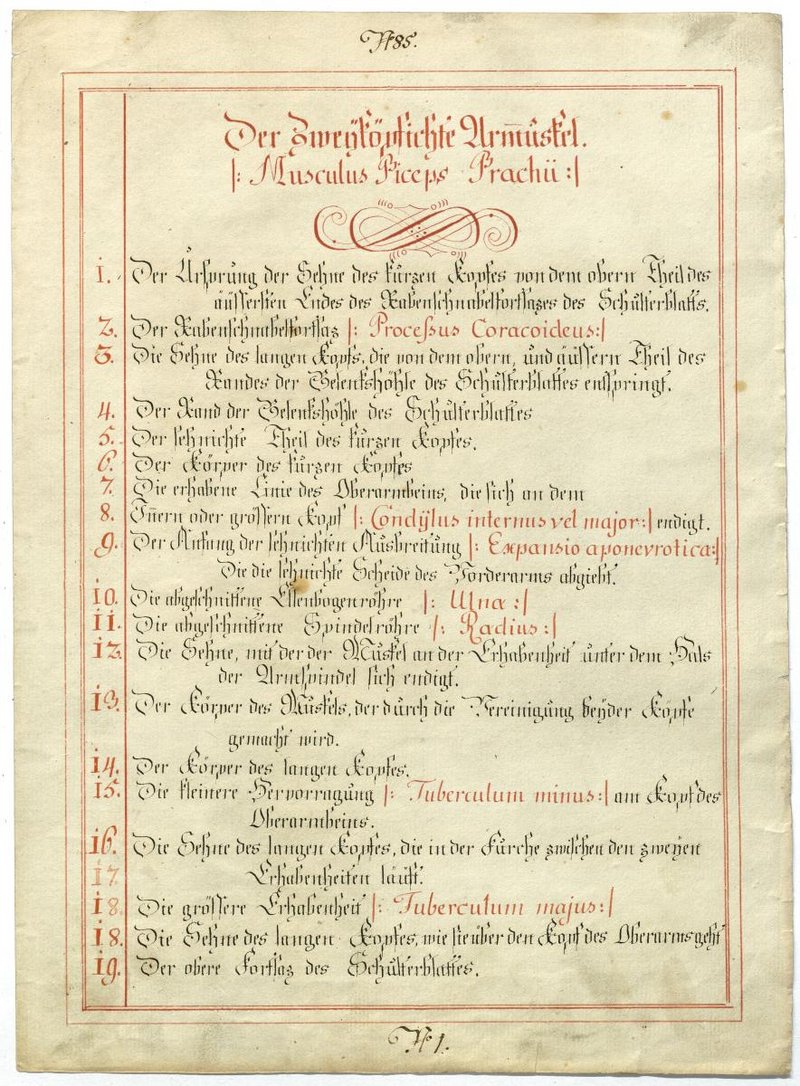 N° 85.
Der Zweyköpfichte Arm̅uskel.
|: Musculus Biceps Brachii :|
1. Der Ursprung der Sehne des kurzen Kopfes von dem obern Theil des
äussersten Endes des Rabenschnabelfortsazes des Schulterblatts.
2. Der Rabenschnabelfortsaz |: Processus Coracoideus :|
3. Die Sehne des langen Kopfs, die von dem obern, und äussern Theil des
Randes der Gelenkshöhle des Schulterblattes entspringt.
4. Der Rand der Gelenkshöhle des Schulterblattes
5. Der sehnichte Theil des kurzen Kopfes.
6. Der Körper des kurzen Kopfes
7. Die erhabene Linie des Oberarmbeins, die sich an dem
8. Iñern oder grössern Kopf |: Condÿlus internus vel major :| endigt.
9. Der Anfang der sehnichten Ausbreitung |: Expansio aponevrotica :|
Die die sehnichte Scheide des Vorderarms abgiebt.
10. Die abgeschnittene Ellenbogenröhre |: Ulnæ :|
11. Die abgeschnittene Spindelröhre |: Radius :|
12. Die Sehne, mit der der Muskel an der Erhabenheit unter dem Hals
der Armspindel sich endigt.
13. Der Körper des Muskels, der durch die Vereinigung beyder Köpfe
gemacht wird.
14. Der Körper des langen Kopfes.
15. Die kleinere Hervorragung |: Tuberculum minus :| am Kopf des
Oberarmbeins.
16. Die Sehne des langen Kopfes, die in der Furche zwischen den zweyen
17. Erhabenheiten läuft.
18. Die grössere Erhabenheit |: Tuberculum majus :|
18. Die Sehne des langen Kopfes, wie sie über den Kopf des Oberarms geht
19. Der obere Fortsaz des Schulterblattes.
N° 1.